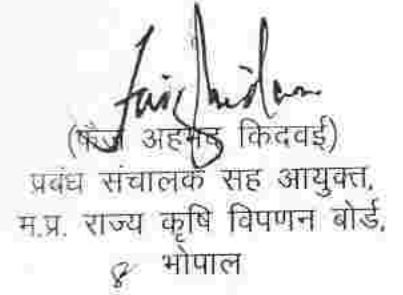 (फैज अहमद किदवई)
प्रबंध संचालक सह आयुक्त,
म.प्र. राज्य कृषि विपणन बोर्ड,
भोपाल